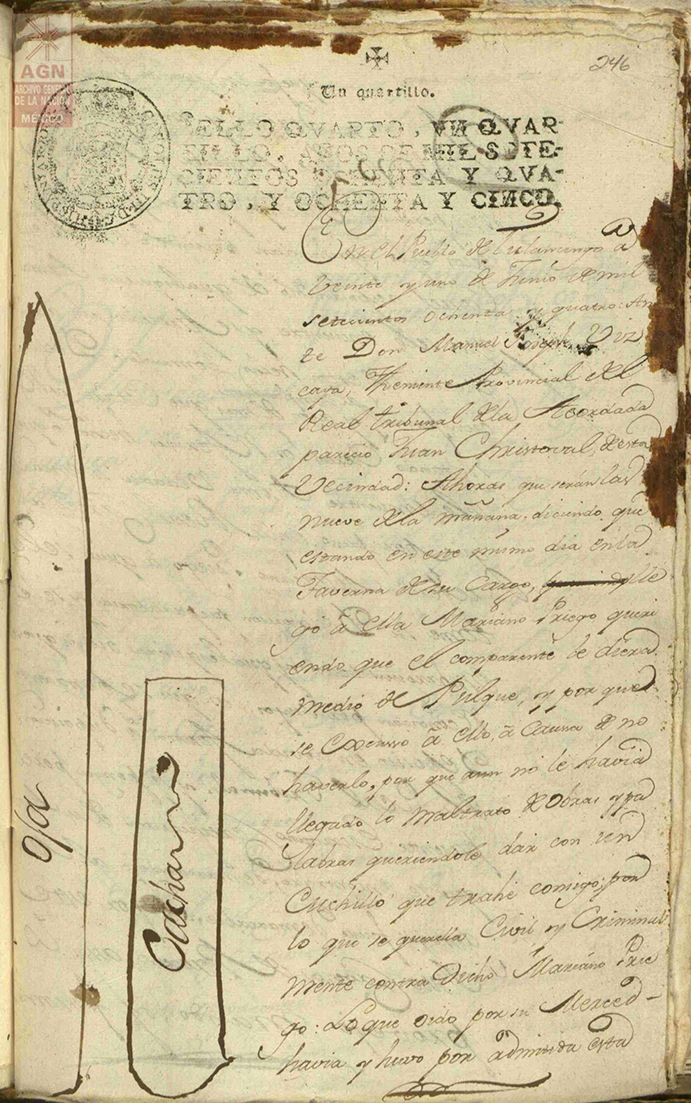 AGN
ARCHIVO GENERAL
DE LA NACION
MÉXICO
246
Un quartillo.
SELLO QVARTO, VN QVAR
TILLO, AÑOS DE MIL SETE-
CIENTOS OCHENTA Y QVA-
TRO, Y OCHENTA Y CINCO.
En el Pueblo de tulansingo á
veinte y uno de Junio de mil
setecientos ochenta y quatro: An
te Don Manuel Joseph Viz
caya, Theniente Provincial del
Real tribunal de la Acordada
parecio Juan Christoval, de esta
Vecindad: Ahoras que serán las
nueve de la mañana, diciendo que
estando en este mismo dia en la
Taverna de su Cargo, lle
gó á ella Mariano Priego queri
endo que el comparente le diera
medio de Pulque, y por que
se excusó á ello, á causa de no
haverlo, por que aun no le havia
llegado lo maltrato de obras y pa
labras queriendole dar con un
Cuchillo que trahe consigo; por
lo que se querella Civil y Criminal
mente contra dicho Mariano Prie
go: Lo que oido por su Merced
havia y huvo por admitida esta